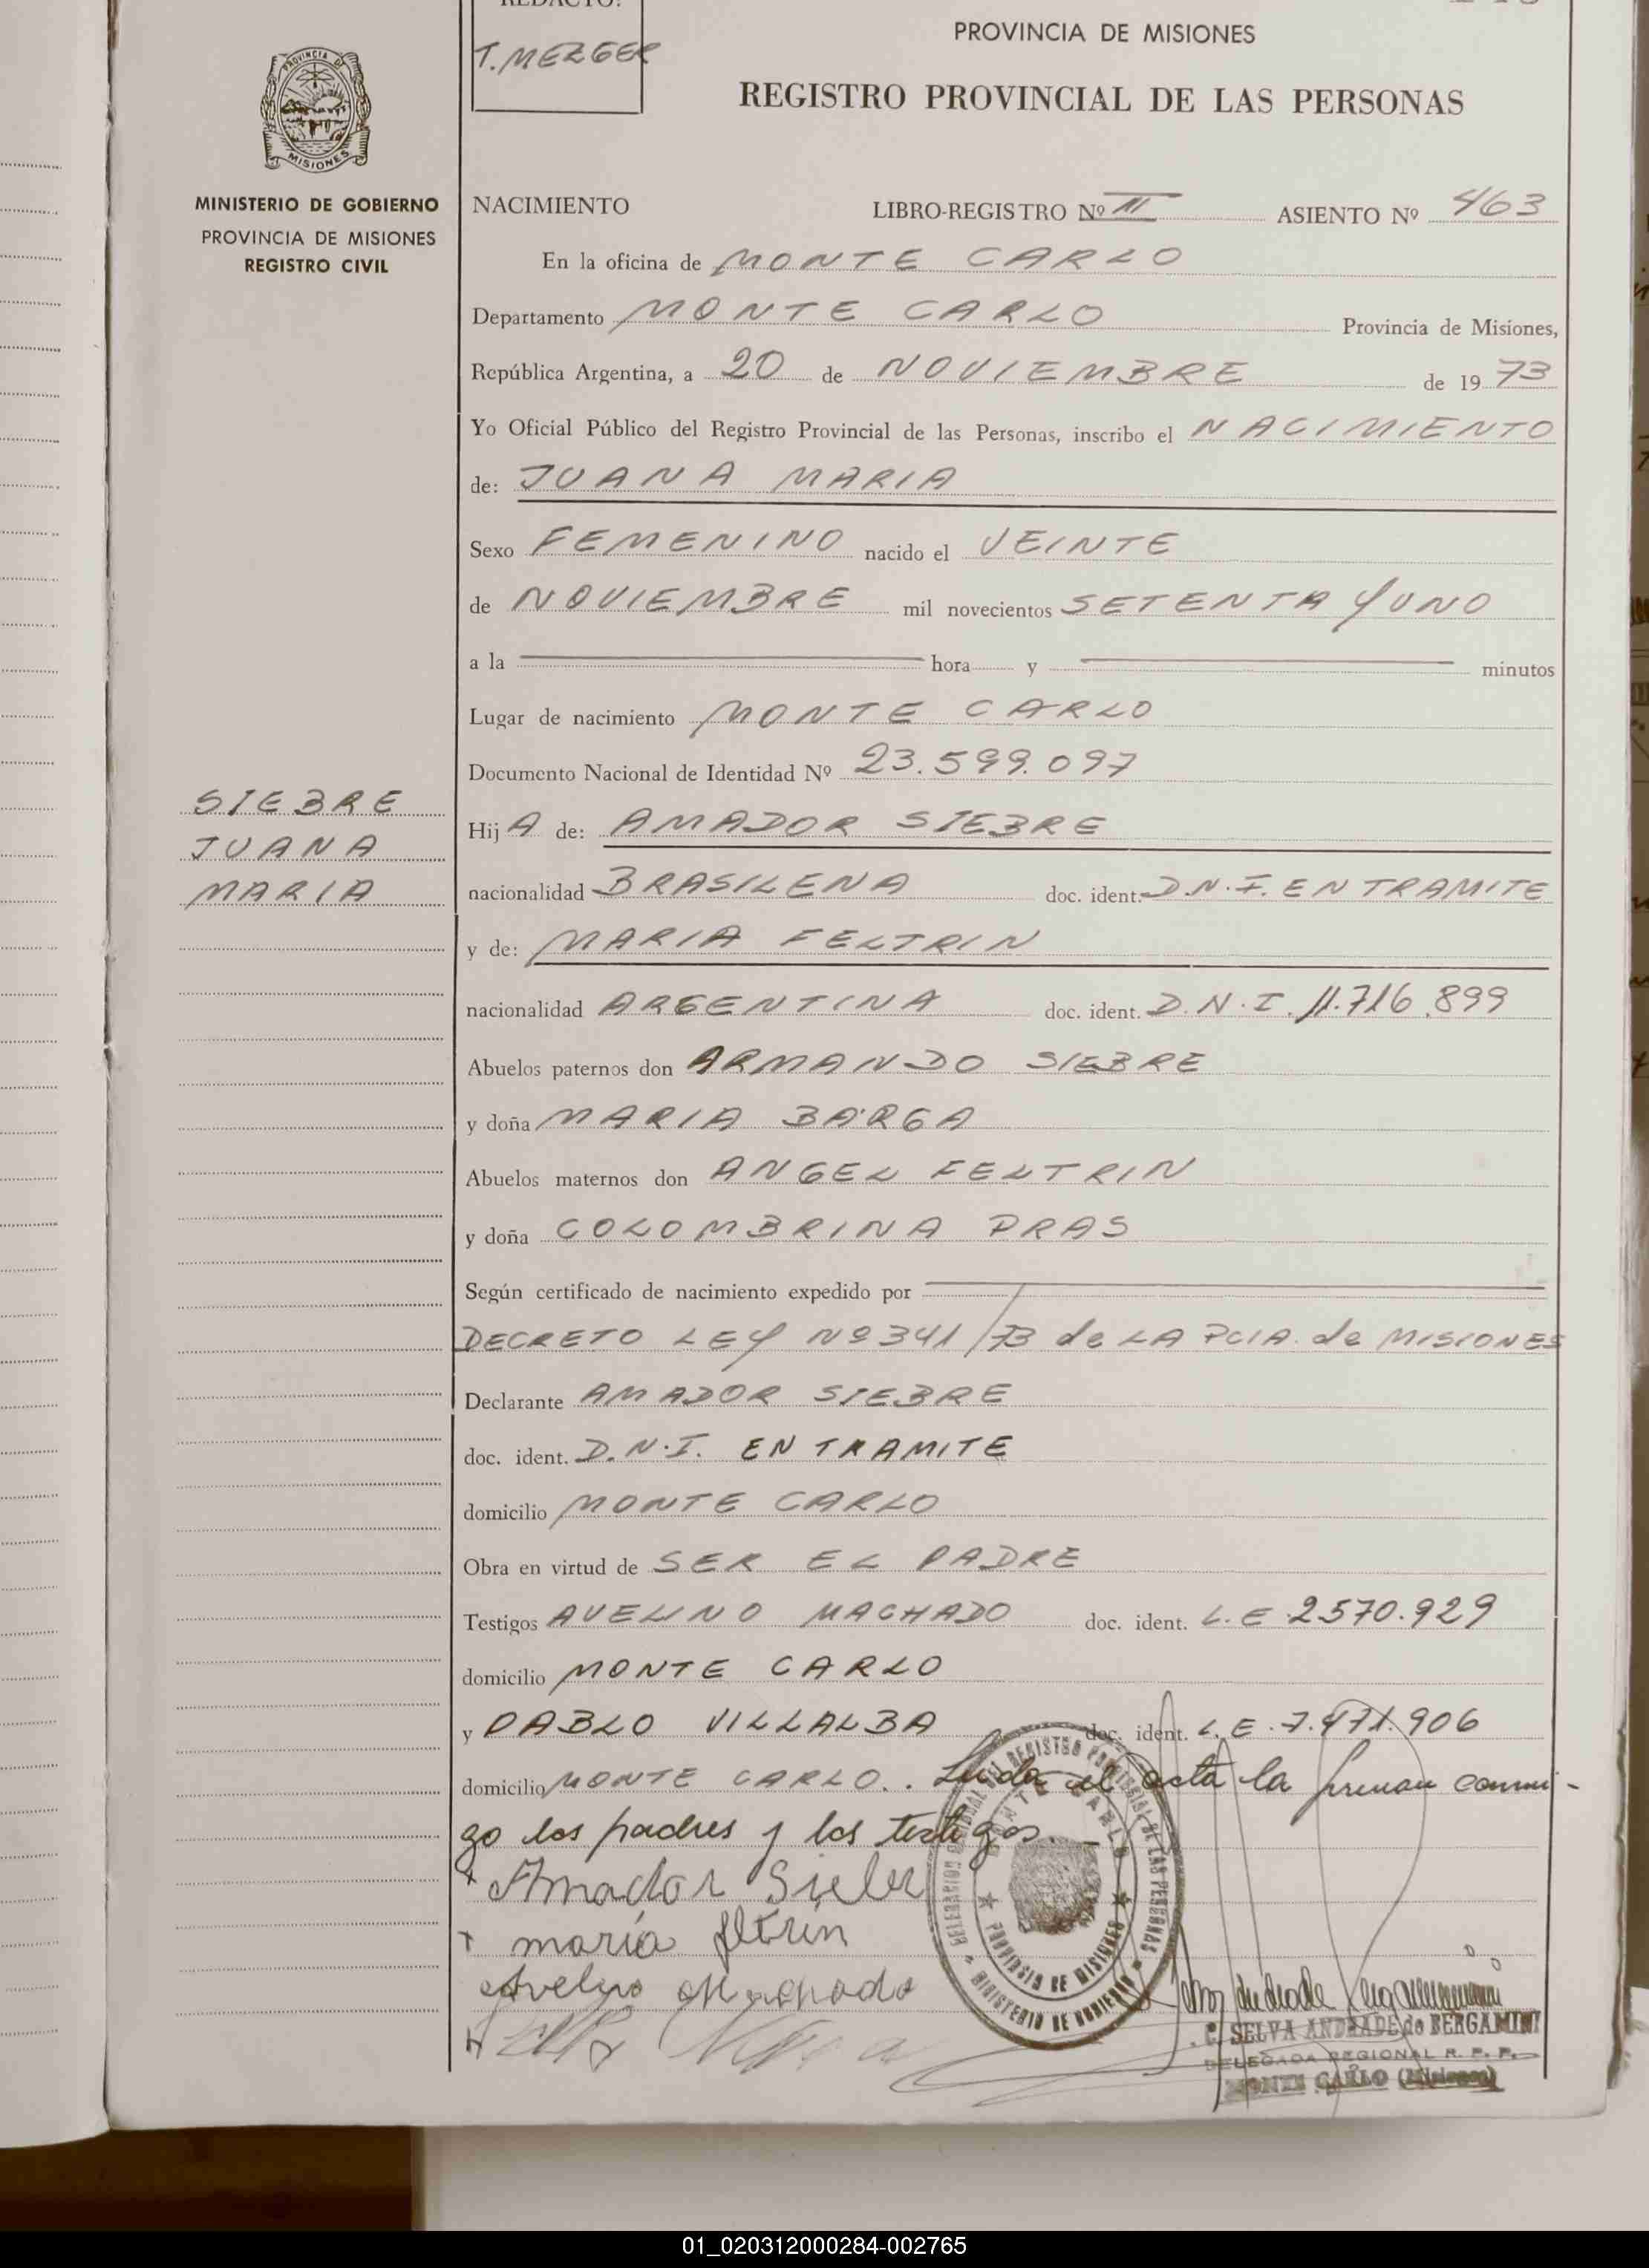 REDACTO:
T. MEZGER
PROVINCIA DE MISIONES
REGISTRO PROVINCIAL DE LAS PERSONAS
PROVINCIA DE
MISIONES
MINISTERIO DE GOBIERNO
PROVINCIA DE MISIONES
REGISTRO CIVIL
NACIMIENTO LIBRO-REGISTRO Nº III ASIENTO Nº 463
En la oficina de MONTE CARLO
Departamento MONTE CARLO Provincia de Misiones,
República Argentina, a 20 de NOVIEMBRE de 1973
Yo Oficial Público del Registro Provincial de las Personas, inscribo el NACIMIENTO
de: JUANA MARIA
Sexo FEMENINO nacido el VEINTE
de NOVIEMBRE mil novecientos SETENTA Y UNO
a la hora y minutos
Lugar de nacimiento MONTE CARLO
Documento Nacional de Identidad Nº 23.599.097
SIEBRE
JUANA
MARIA
Hij A de: AMADOR SIEBRE
nacionalidad BRASILENA doc. ident. D.N.I. EN TRAMITE
y de: MARIA FELTRIN
nacionalidad ARGENTINA doc. ident. D.N.I. 11.716.899
Abuelos paternos don ARMANDO SIEBRE
y doña MARIA BARGA
Abuelos maternos don ANGEL FELTRIN
y doña COLOMBRINA PRAS
Según certificado de nacimiento expedido por
DECRETO LEY Nº 341/73 de LA PCIA. de MISIONES
Declarante AMADOR SIEBRE
doc. ident. D.N.I. EN TRAMITE
domicilio MONTE CARLO
Obra en virtud de SER EL PADRE
Testigos AVELINO MACHADO doc. ident. L.E 2570.929
domicilio MONTE CARLO
y PABLO VILLALBA doc. ident. L.E. 7.471.906
domicilio MONTE CARLO. Leida el acta la firman conmi-
go los padres y los testigos
Amador Siebre
maría feltrin
Avelino Machado
MONTE CARLO
PROVINCIA DE MISIONES
MINISTERIO DE GOBIERNO
C. SELVA ANDRADE de BERGAMINI
DELEGADA REGIONAL R. P. P.
MONTE CARLO (Misiones)
01_020312000284-002765